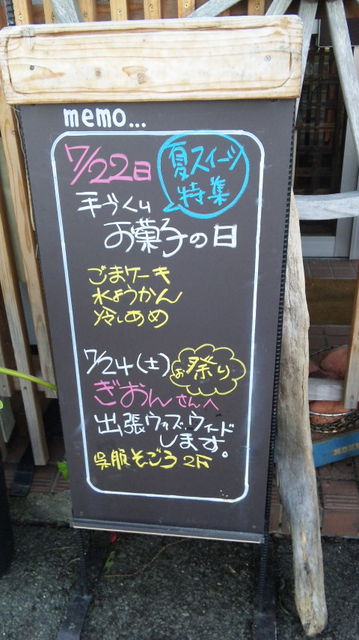 memo...
7/22日
夏スイーツ
特集
手づくり
お菓子の日
ごまケーキ
水ようかん
冷しあめ
7/24(土)
お祭り
ぎおんさんへ
出張ウッズ・ウィード
します。
呉服そごう2F